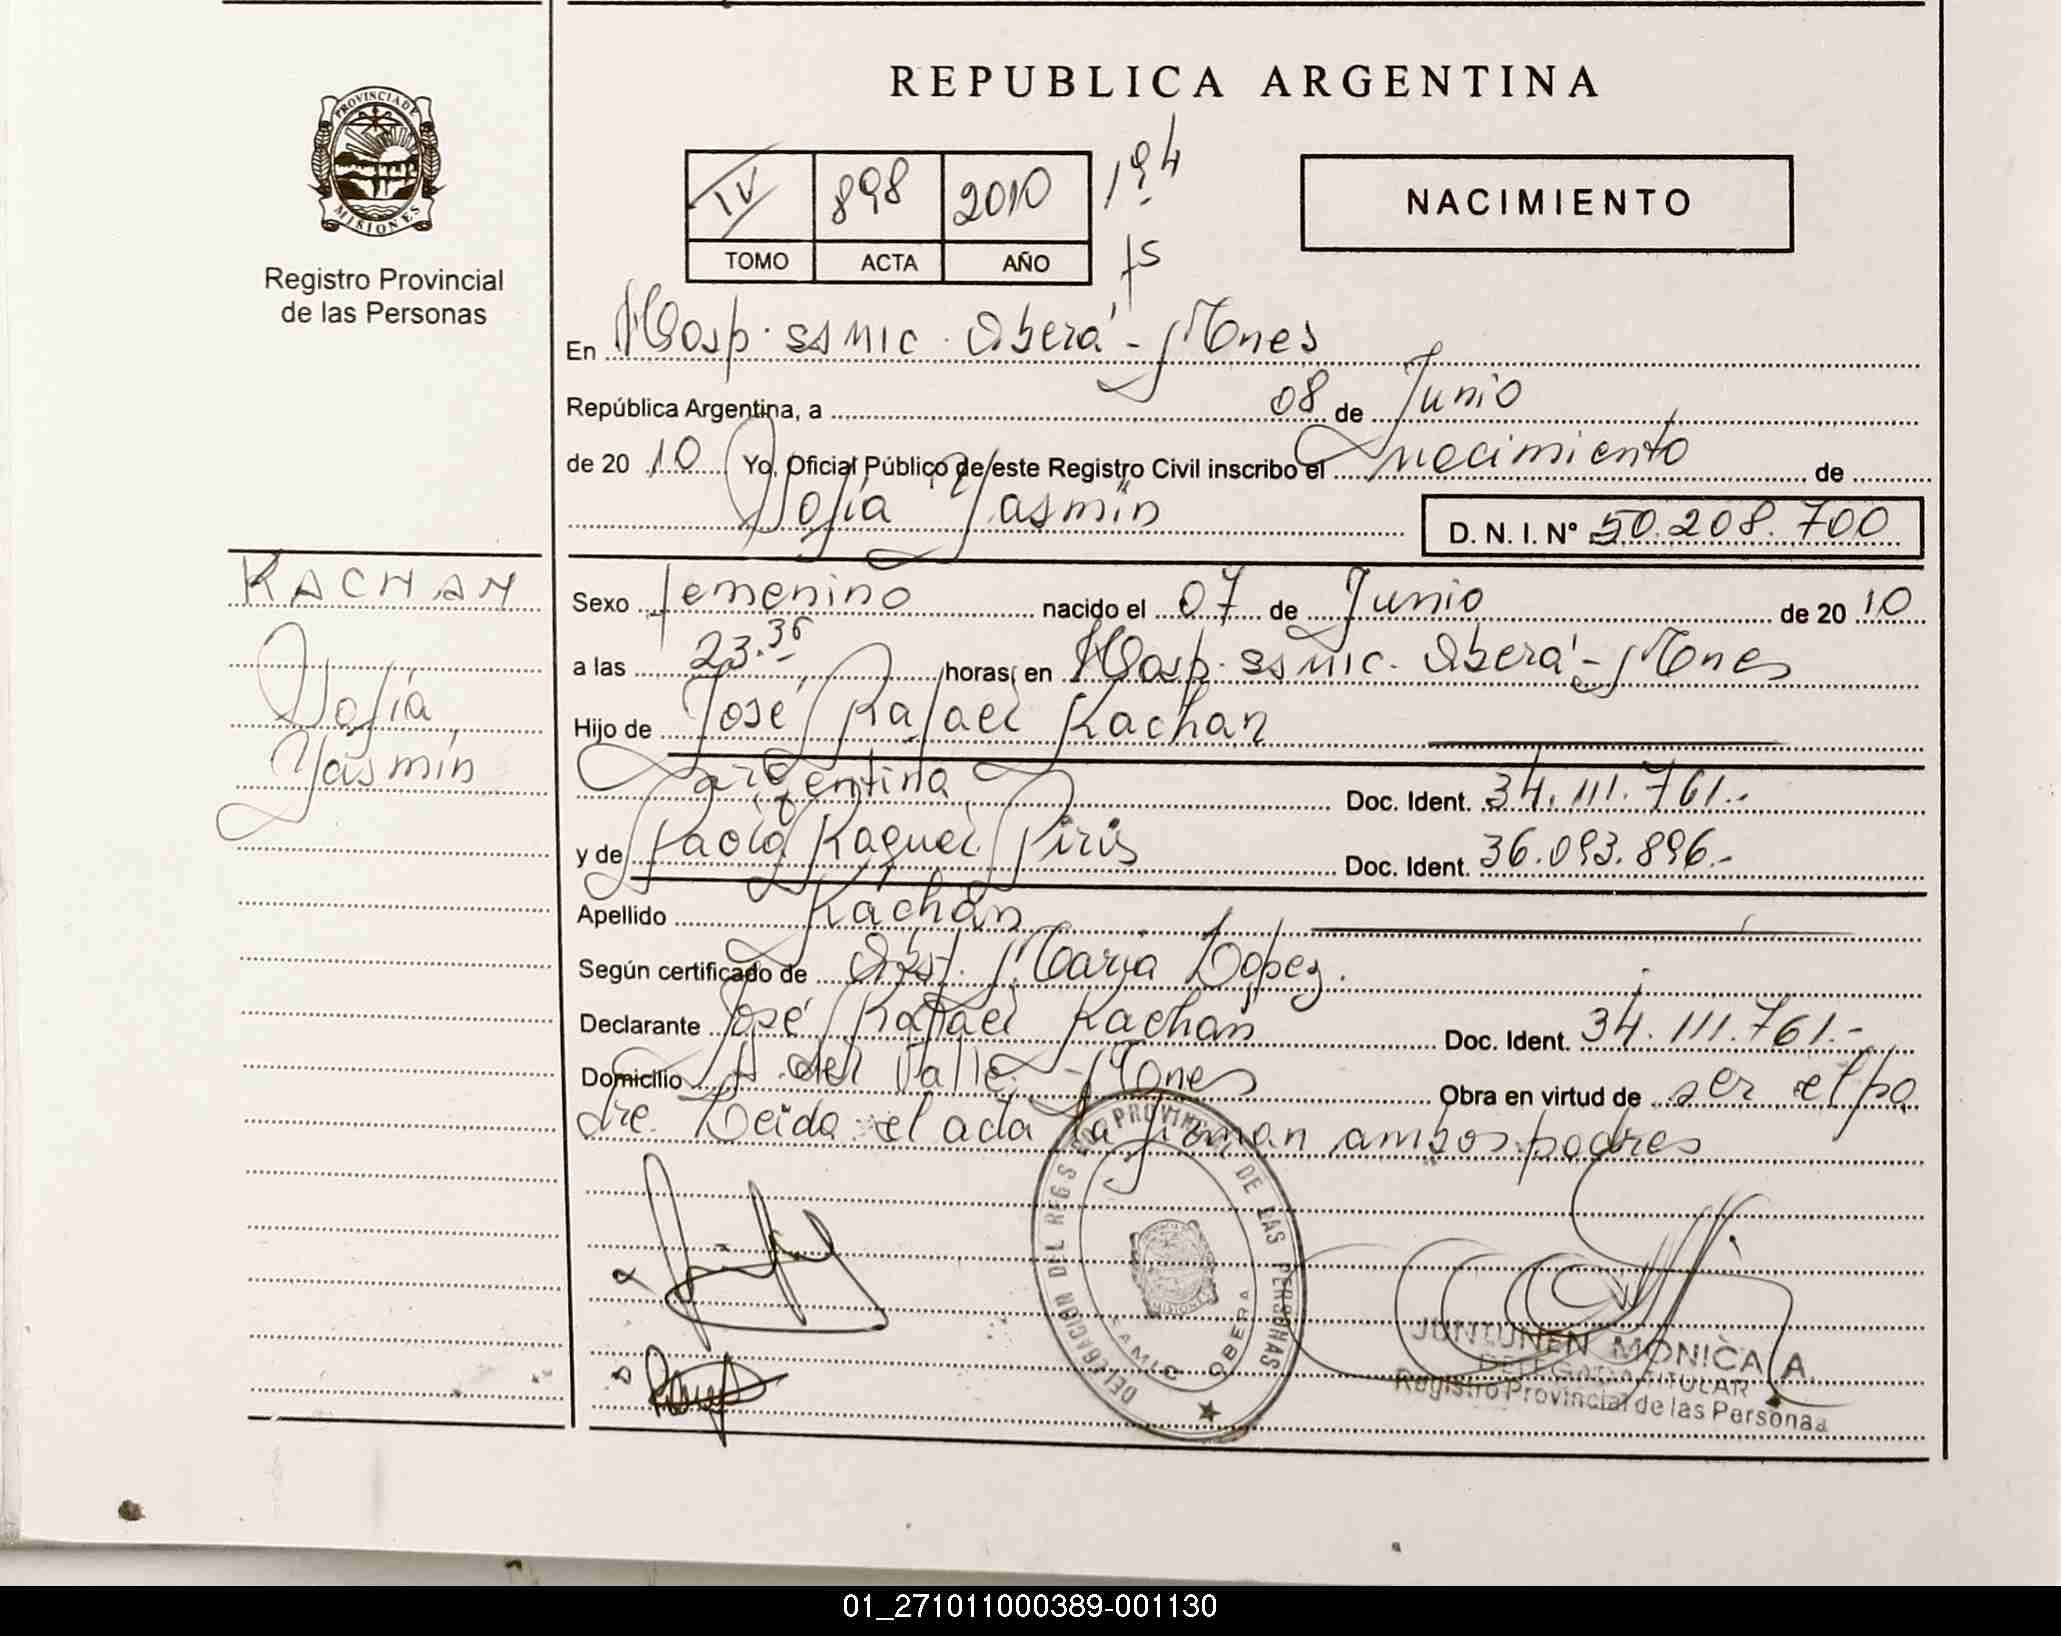 REPUBLICA ARGENTINA
PROVINCIA DE
MISIONES
Registro Provincial
de las Personas
IV 898 2010 194
TOMO ACTA AÑO fs
NACIMIENTO
En Hosp. SAMIC. Oberá - Mnes
República Argentina, a 08 de Junio
de 20 10 Yo, Oficial Público de este Registro Civil inscribo el nacimiento de
Sofía Yasmín D. N. I. Nº 50.208.700
KACHAN
Sofía
Yasmín
Sexo femenino nacido el 07 de Junio de 20 10
a las 23.36 horas, en Hosp. SAMIC. Oberá - Mnes
Hijo de José Rafael Kachan
argentina Doc. Ident. 34.111.761.-
y de Paola Raquel Piris Doc. Ident. 36.093.896.-
Apellido Kachan
Según certificado de Obst. María Lopez.
Declarante José Rafael Kachan Doc. Ident. 34.111.761.-
Domicilio A. del Valle - Mnes Obra en virtud de ser el pa
dre. Leida el acta la firman ambos padres
DELEGACION DEL REGS PROVINCIAL DE LAS PERSONAS
SAMIC OBERA
JUNTUNEN MONICA A.
DELEGADA TITULAR
Registro Provincial de las Personas
01_271011000389-001130